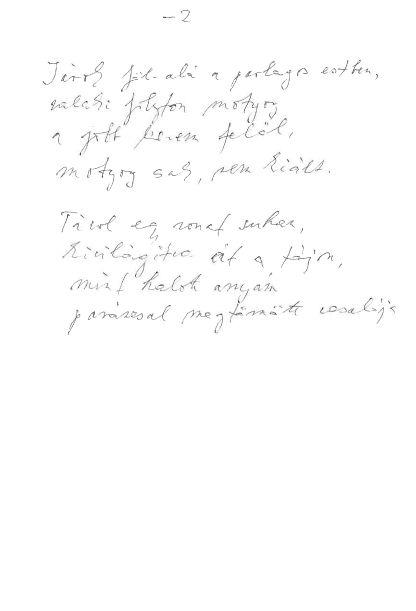 -2
Járok föl-alá a parlagos estben,
valaki folyton motyog
a jobb kezem felől,
motyog csak, nem kiált.
Távol egy vonat suhan,
kivilágítva át a tájon,
mint halott anyám
parázzsal megtömött vasalója